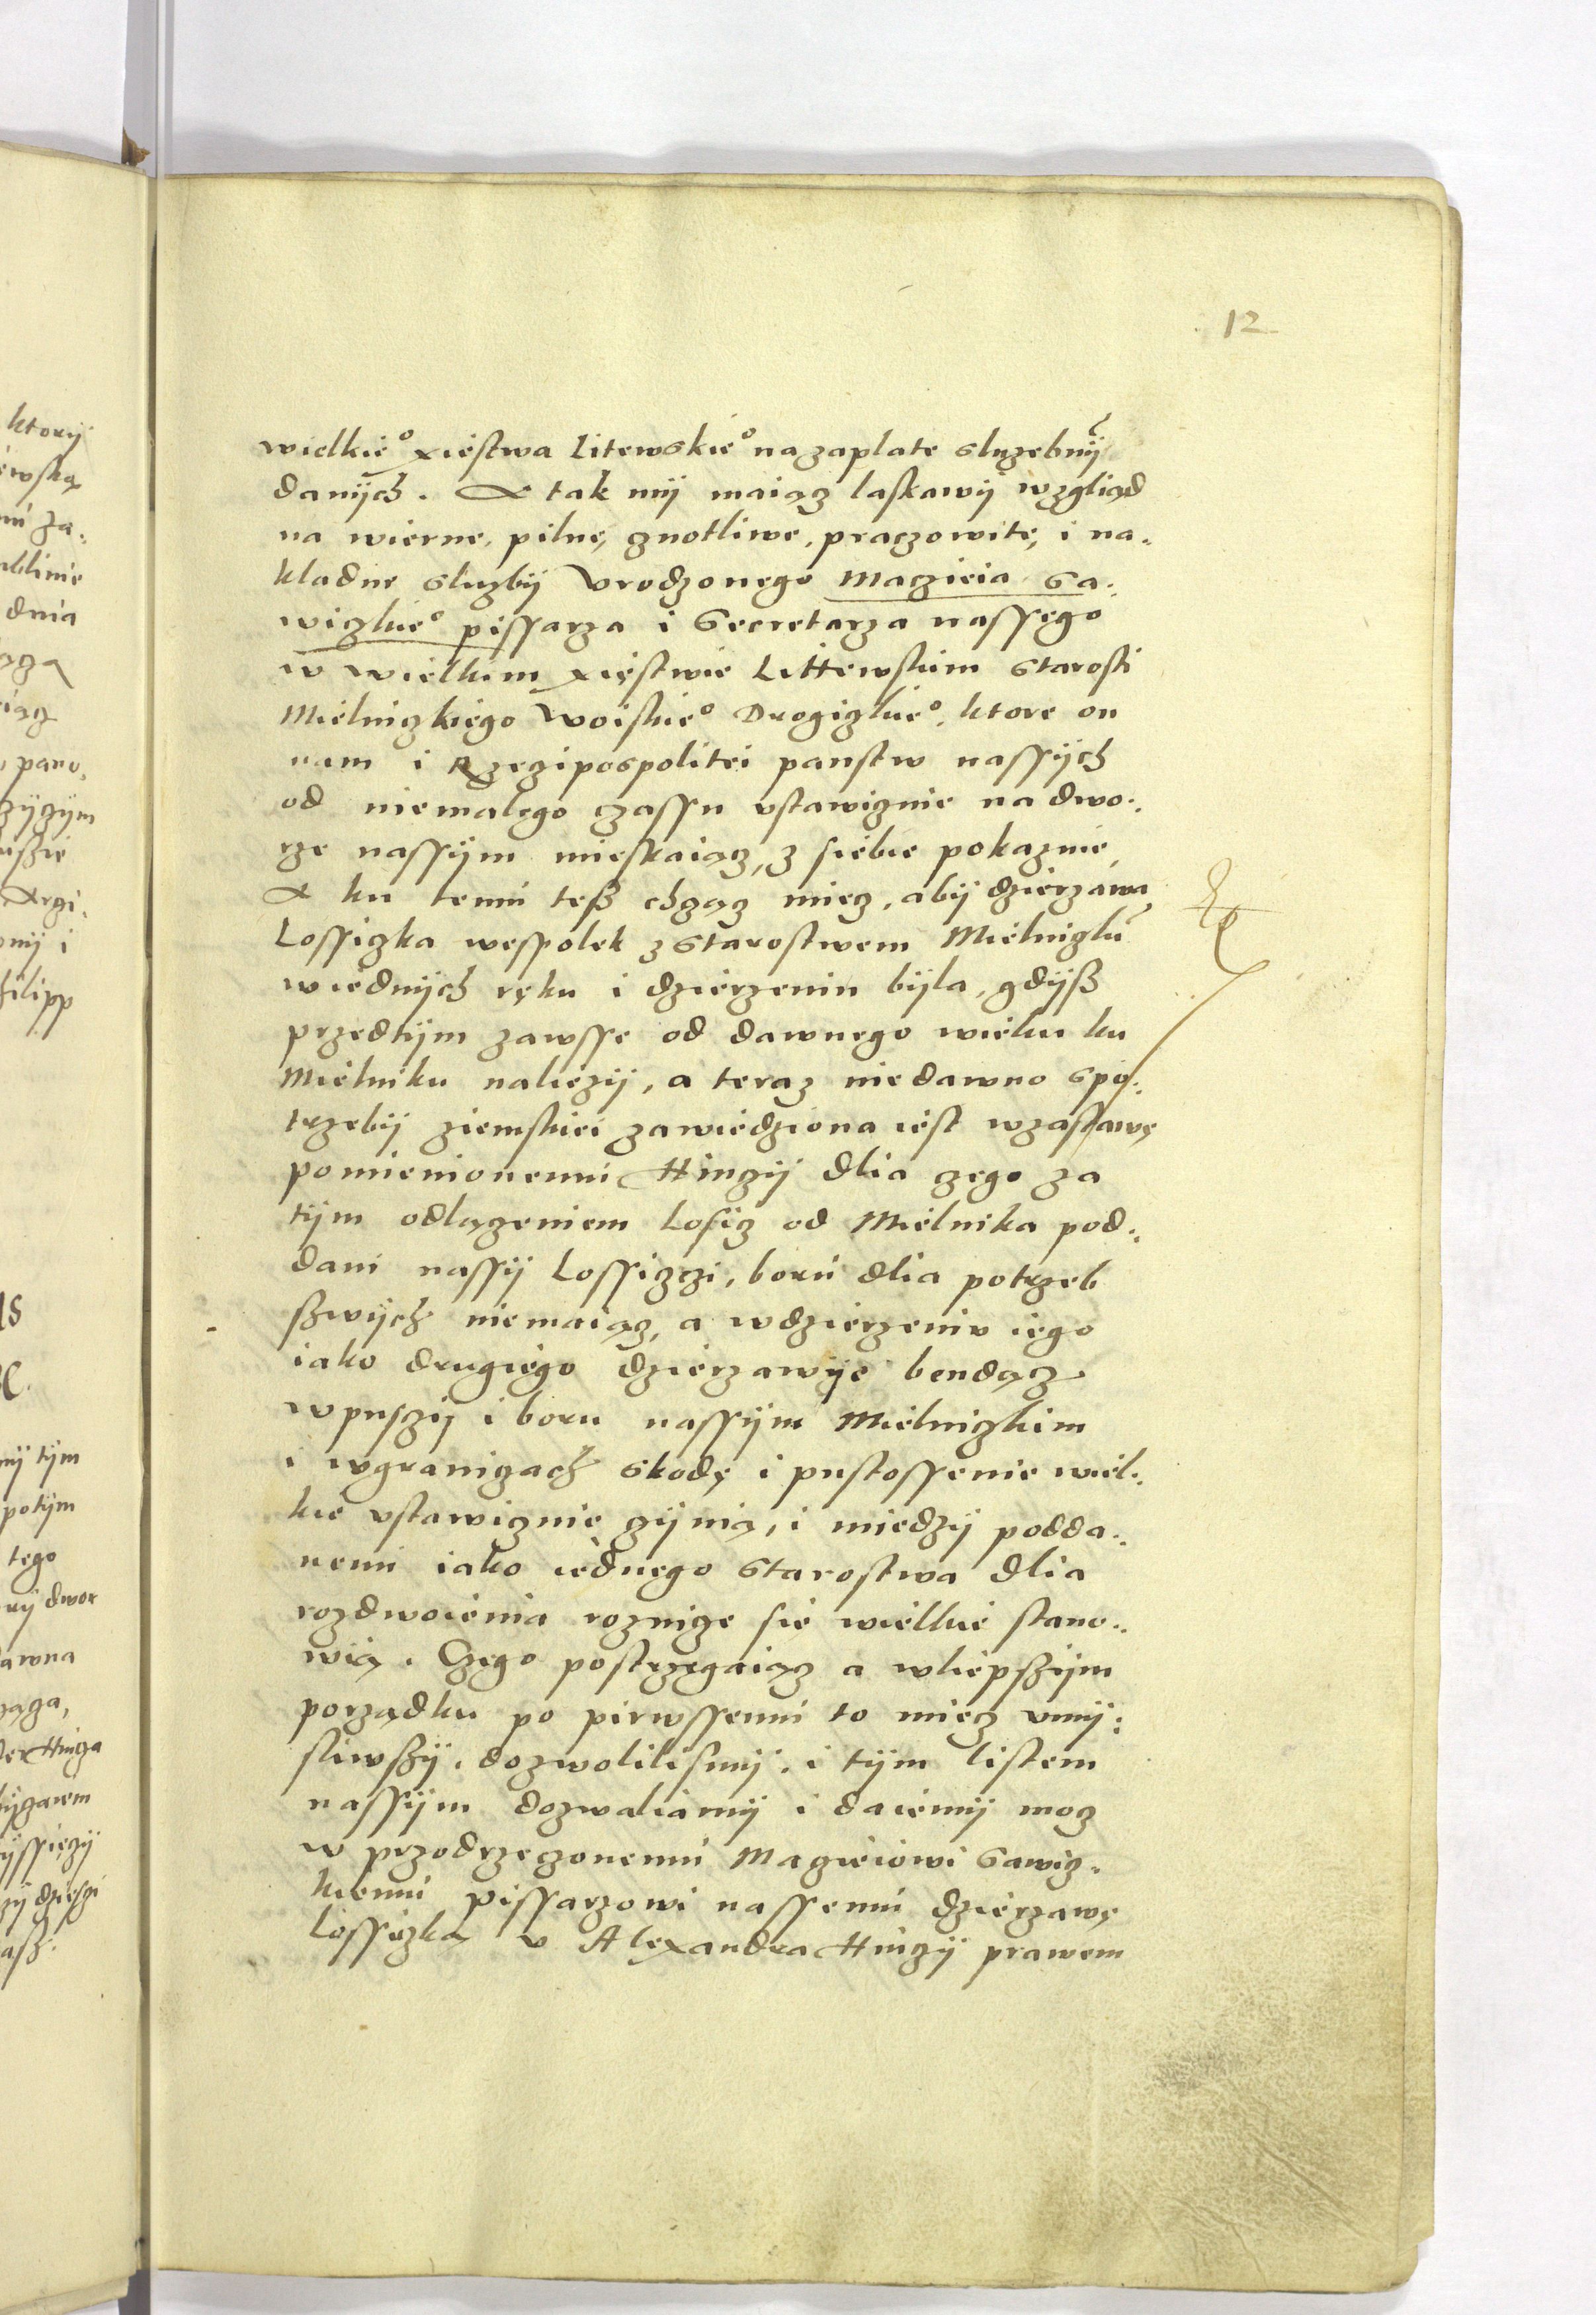 12
wielkie° xiestwa Litewskie° na zaplate sluzebny
danych. A tak my maiącz laskawy wzgliąd
na wierne, pilne, cznotliwe, praczowite, i na-
kladne sluzby Vrodzonego Maczieia Sa-
wiczkie° pissarza i Secretarza nassego
w wielkim xięstwie Littewskim Starosti
Mielniczkiego Woiskie° Drogiczkie°, ktore on
nam i Rzeczipospolitei panstw nassych
od niemalego czassu vstawicznie na dwo-
rze nassym mieskaiącz, z siebie pokaznie,
A ku temu teß chcząc miecz, aby dzierzawa
Lossiczka wespolek z Starostwem Mielniczki
w iednych ręku i dzierzeniu byla, gdyß
przedtym zawsse od dawnego wieku ku
Mielniku naliezy, a teraz niedawno s po-
trzeby ziemskiei zawiedziona iest w zastawę
pomienionemu Hinczy dlia czego za
tym odlączeniem Losicz od Mielnika pod-
dani nassy Lossiczczi, boru dlia potrzeb
swych niemaiącz, a w dzierzeniu iego
iako drugiego dzierzawcze bendącz
w pusczy i boru nassym Mielniczkim
i w graniczach skodę i pustossenie wiel-
kie vstawicznie czynią, i miedzy podda-
nemi iako iednego Starostwa dlia
rozdwoienia roznicze sie wielkie stano-
wią. Czego postrzegaiącz a w liepszym
porządku po pirwssemu to miecz vmy-
sliwszy, dozwolilismy, i tym listem
nassym dozwaliamy i daiemy mocz
w przodrzeczonemu Macieiowi Sawicz-
kiemu pissarzowi nassemu dzierzawę
Lossiczką v Alexandra Hinczy prawem